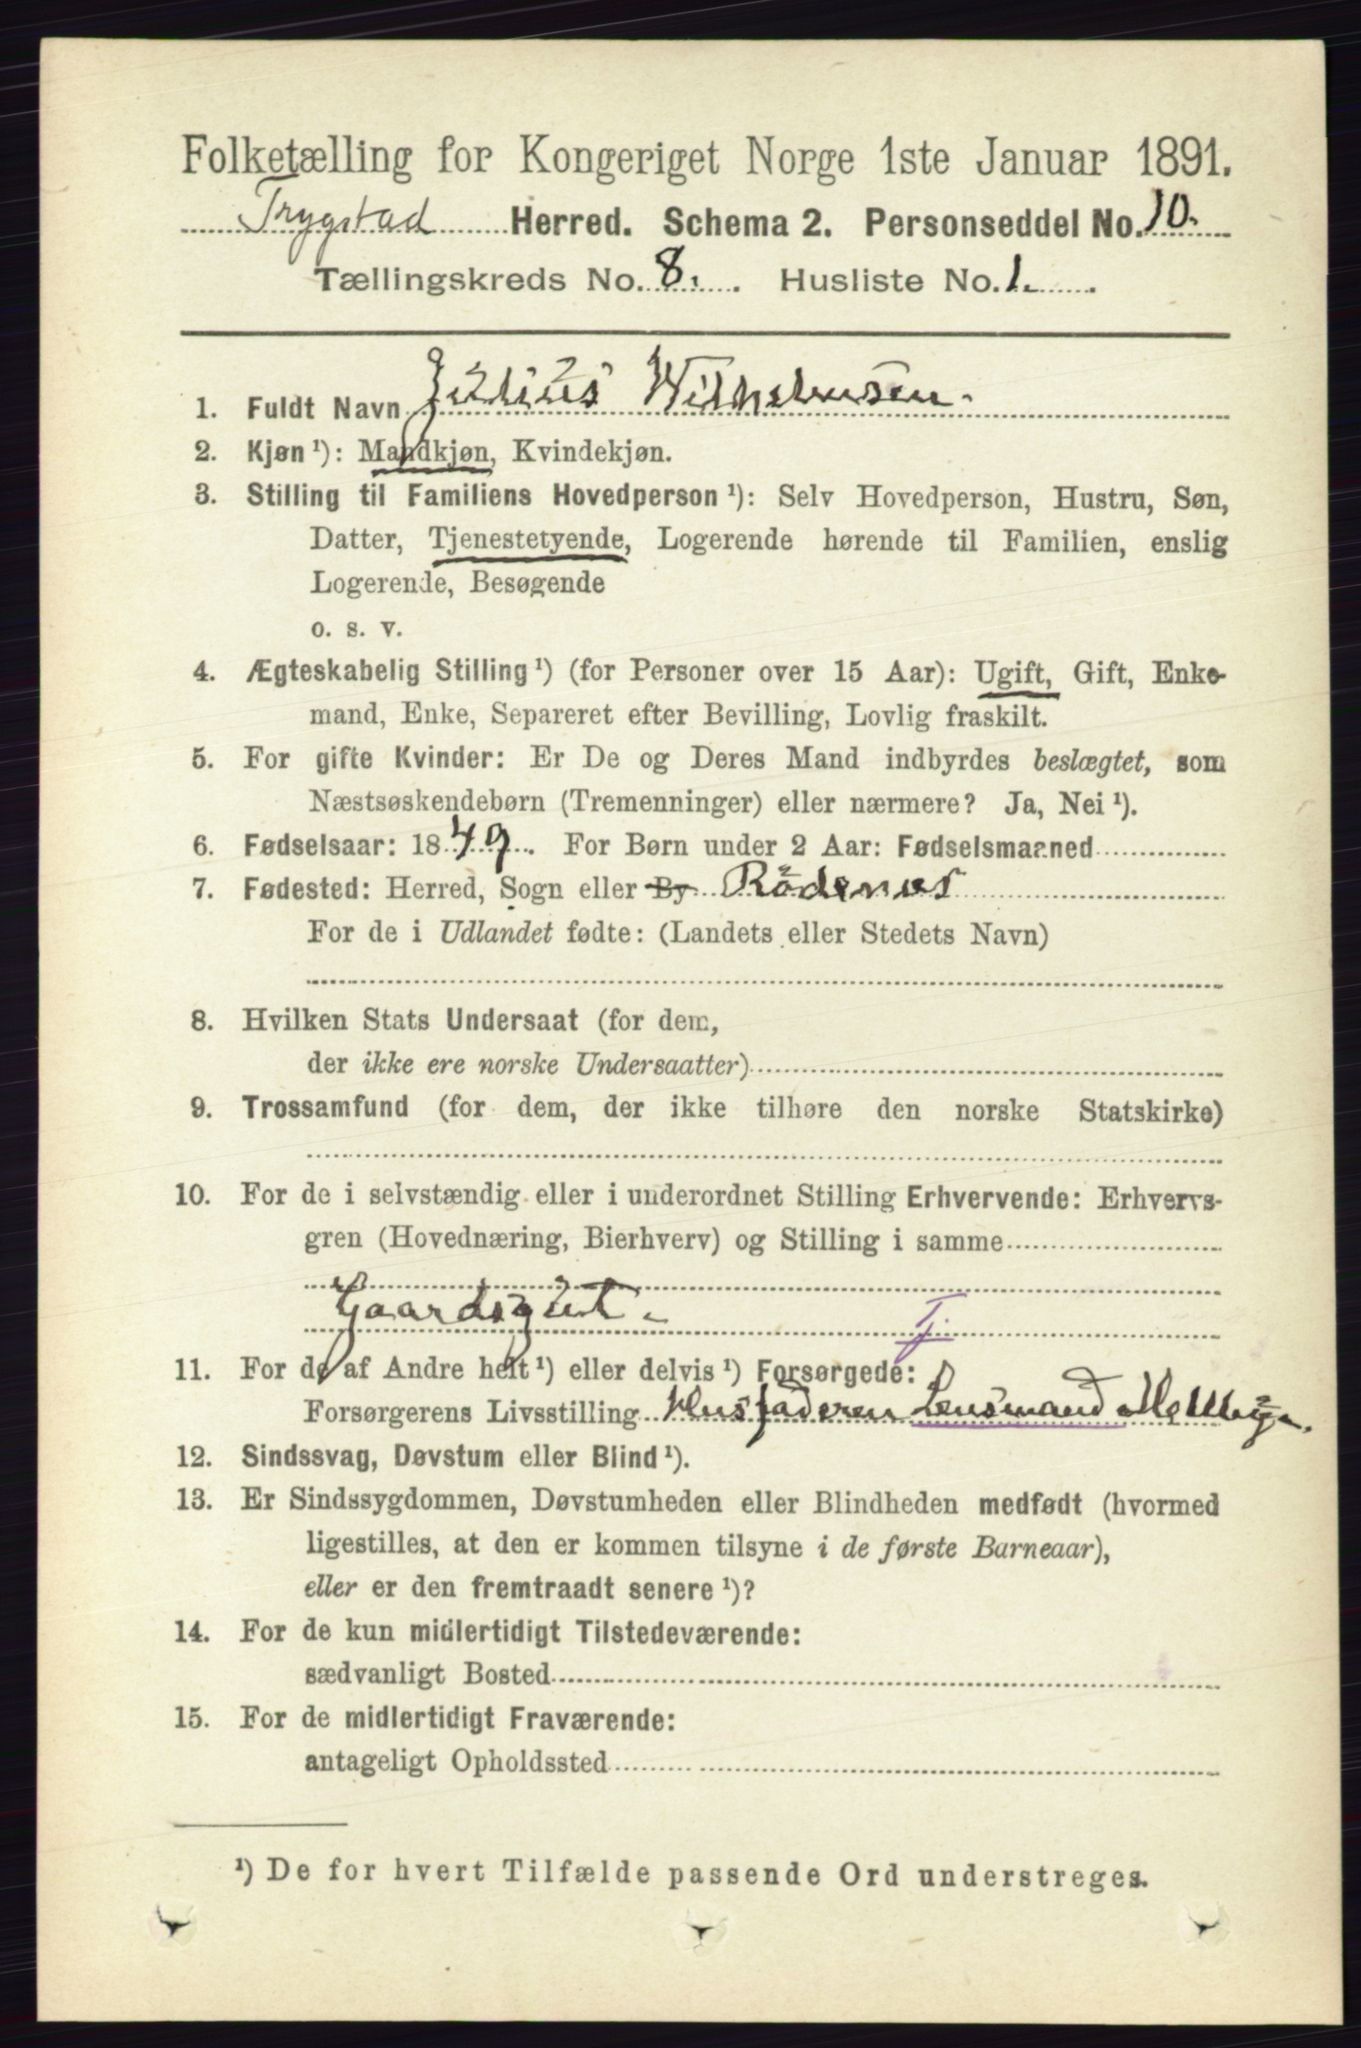 Folketælling for Kongeriget Norge 1ste Januar 1891.
Trygstad Herred. Schema 2. Personseddel No. 10.
Tællingskreds No. 8. Husliste No. 1.
1. Fuldt Navn Julius Wilhelmsen.
2. Kjøn ¹): Mandkjøn, Kvindekjøn.
3. Stilling til Familiens Hovedperson ¹): Selv Hovedperson, Hustru, Søn,
Datter, Tjenestetyende, Logerende hørende til Familien, enslig
Logerende, Besøgende
o. s. v.
4. Ægteskabelig Stilling ¹) (for Personer over 15 Aar): Ugift, Gift, Enke-
mand, Enke, Separeret efter Bevilling, Lovlig fraskilt.
5. For gifte Kvinder: Er De og Deres Mand indbyrdes beslægtet, som
Næstsøskendebørn (Tremenninger) eller nærmere? Ja, Nei ¹).
6. Fødselsaar: 1849. For Børn under 2 Aar: Fødselsmaaned
7. Fødested: Herred, Sogn eller By Rödenes
For de i Udlandet fødte: (Landets eller Stedets Navn)
8. Hvilken Stats Undersaat (for dem,
der ikke ere norske Undersaatter)
9. Trossamfund (for dem, der ikke tilhøre den norske Statskirke)
10. For de i selvstændig eller i underordnet Stilling Erhvervende: Erhvervs-
gren (Hovednæring, Bierhverv) og Stilling i samme
Gaardsgut. Tj.
11. For de af Andre helt ¹) eller delvis ¹) Forsørgede:
Forsørgerens Livsstilling Husfaderen Lensmand
12. Sindssvag, Døvstum eller Blind ¹).
13. Er Sindssygdommen, Døvstumheden eller Blindheden medfødt (hvormed
ligestilles, at den er kommen tilsyne i de første Barneaar),
eller er den fremtraadt senere ¹)?
14. For de kun midlertidigt Tilstedeværende:
sædvanligt Bosted
15. For de midlertidigt Fraværende:
antageligt Opholdssted
¹) De for hvert Tilfælde passende Ord understreges.